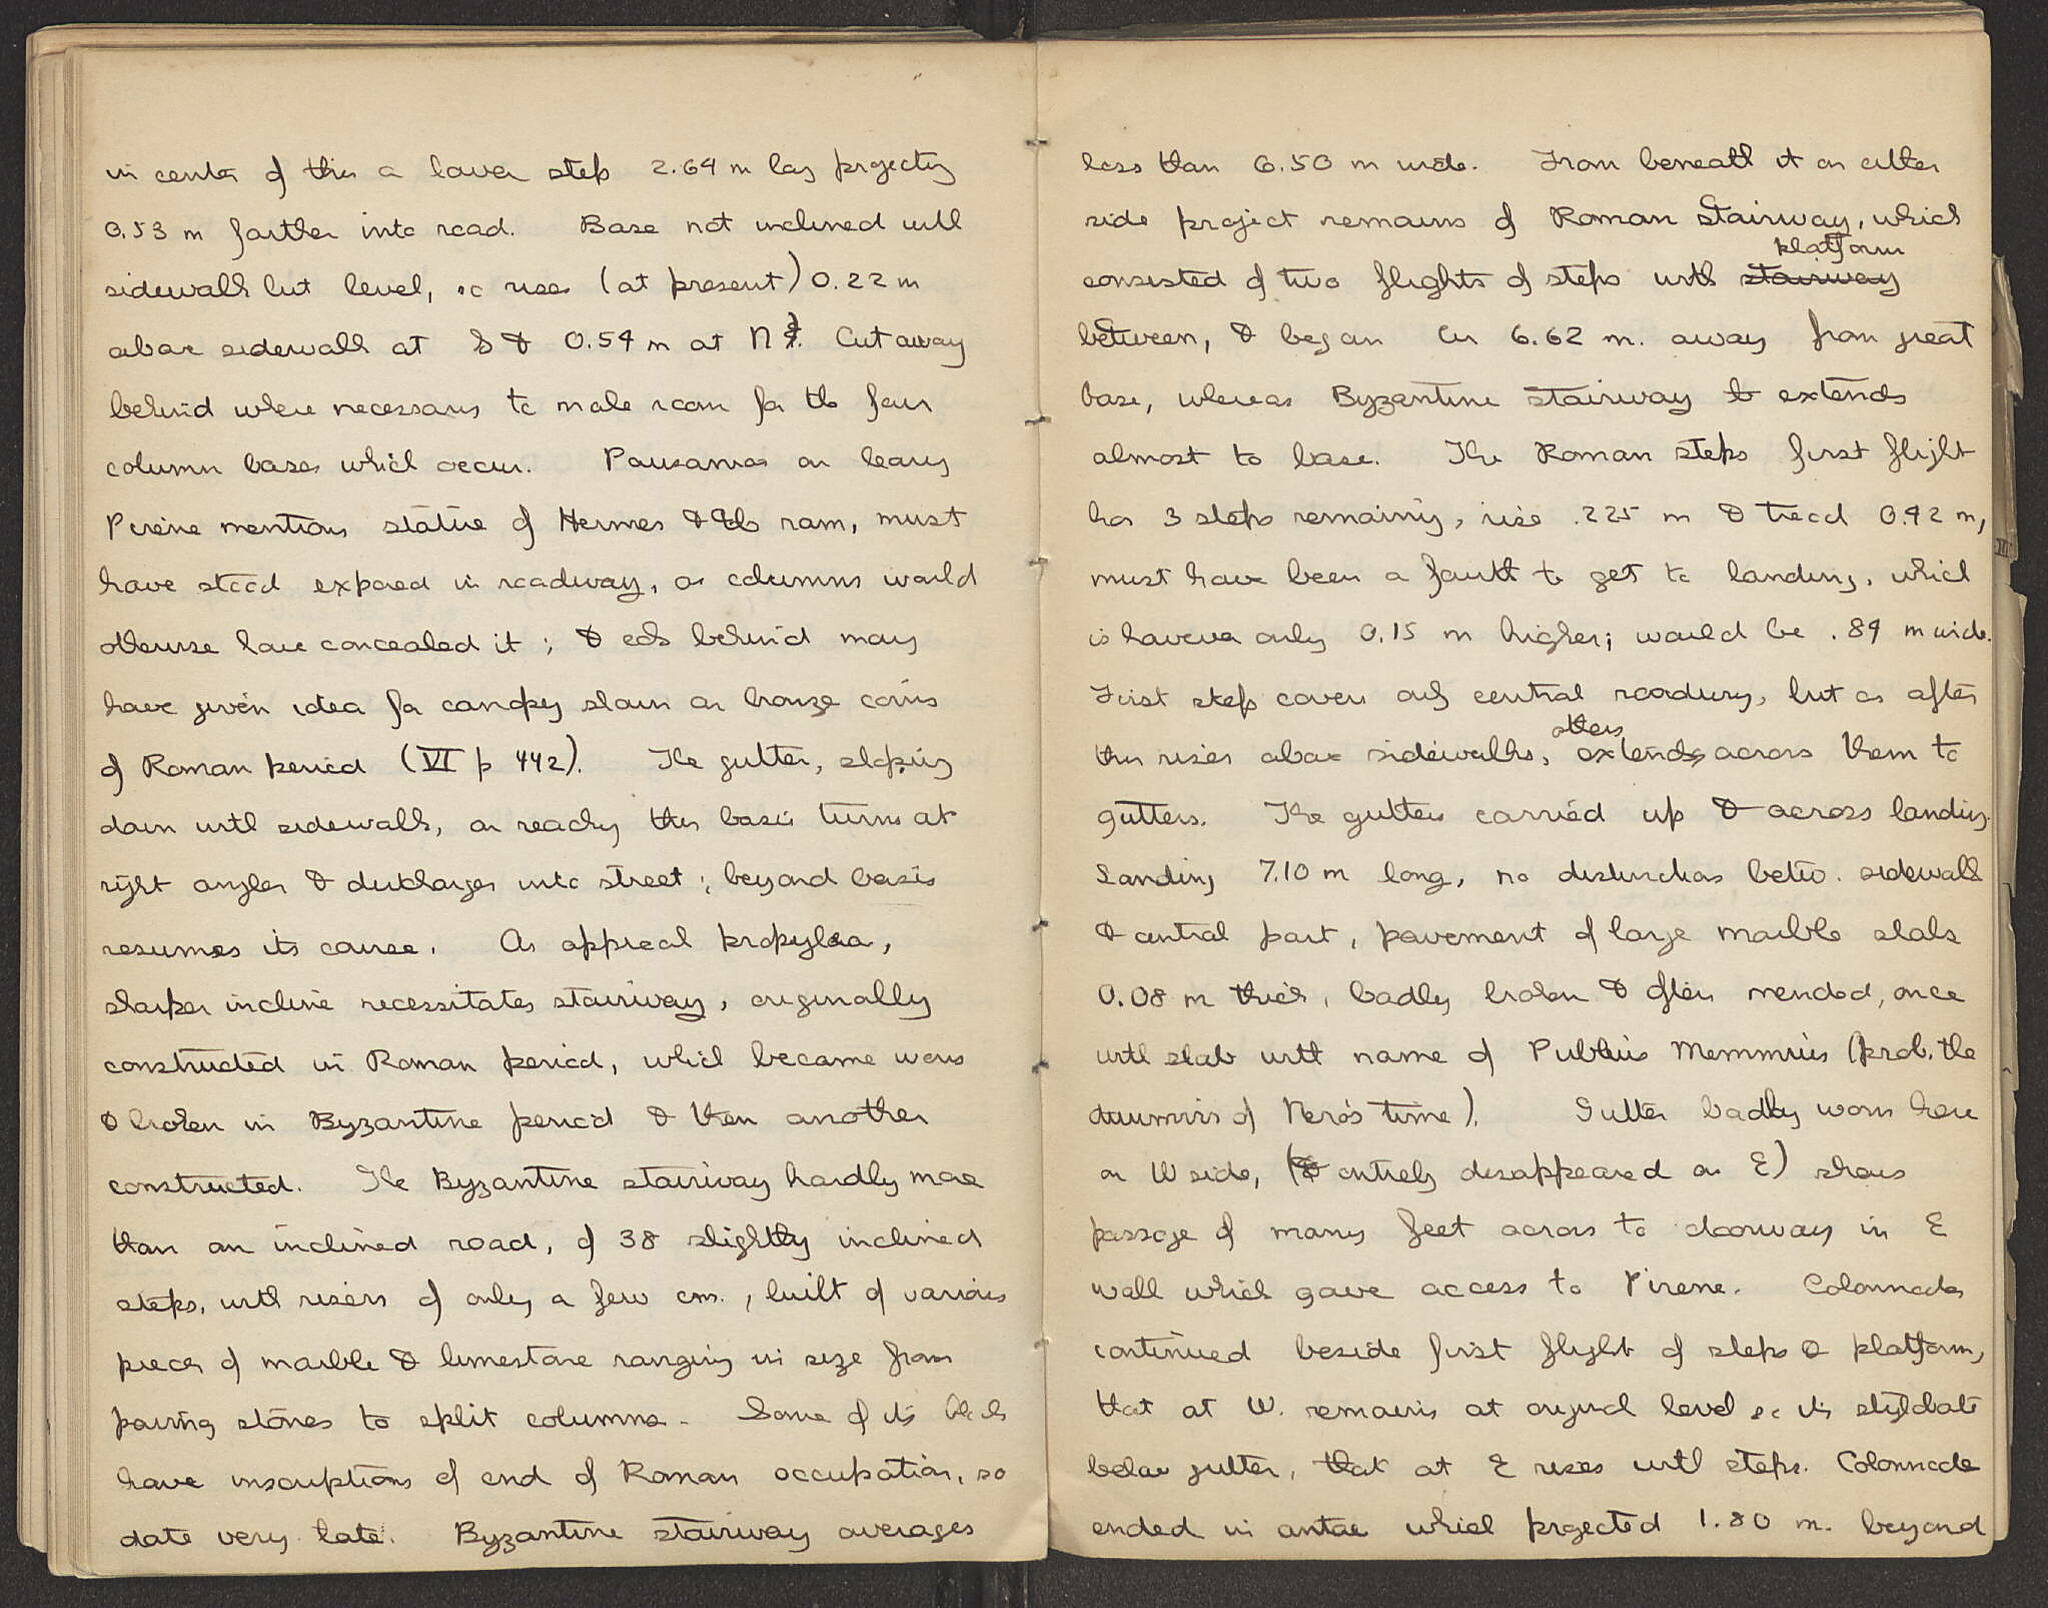 in center of this a lower step 2.64 m long projecting
0.53 m farther into road. Base not inclined with
sidewalk but level, so rises (at present) 0.22 m
above sidewalk at S & 0.54 m at N. Cut away
behind where necessary to make room for the four
column bases which occur. Pausanias on leaving
Pirene mentions statue of Hermes & the ram, must
have stood exposed in roadway, as columns would
otherwise have concealed it; & cols behind may
have given idea for canopy shown on bronze coins
of Roman period (VI p 442). The gutter, sloping
down with sidewalk, on reaching this basis turns at
right angles & discharges into street; beyond basis
resumes its course. As approach propylaea,
sharper incline necessitates stairway, originally
constructed in Roman period, which became worn
& broken in Byzantine period & then another
constructed. The Byzantine stairway hardly more
than an inclined road, of 38 slightly inclined
steps, with risers of only a few cms., built of various
pieces of marble & limestone ranging in size from
paving stones to split columns. Some of its blocks
have inscriptions of end of Roman occupation, so
date very late. Byzantine stairway averages
less than 6.50 m wide. From beneath it on either
side project remains of Roman stairway, which
platform
consisted of two flights of steps with stairway
between, & began 6.62 m. away from great
base, whereas Byzantine stairway extends
almost to base. The Roman steps first flight
has 3 steps remaining, rise .225 m & tread 0.42 m,
must have been a fourth to get to landing, which
is however only 0.15 m higher; would be .84 m wide.
First step covers only central roadway, but as after
others
this rises above sidewalks, extends across them to
gutters. The gutters carried up & across landing.
Landing 7.10 m long, no distinction betw. sidewalk
& central part, pavement of large marble slabs
0.08 m thick, badly broken & often mended, once
with slab with name of Publius Memmius (prob. the
duumvir of Nero's time). Gutter badly worn here
on W side, (& entirely disappeared on E) shows
passage of many feet across to doorway in E
wall which gave access to Pirene. Colonnades
continued beside first flight of steps & platform,
that at W. remains at original level so its stylobate
below gutter, that at E rises with steps. Colonnade
ended in antae which projected 1.80 m. beyond